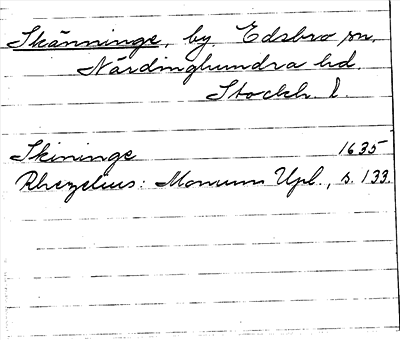 Skänninge, by, Edsbro sn.
Närdinghundra hd.
Stockh. l.
Skininge 1635
Rhezelius: Monum Upl., s. 133.